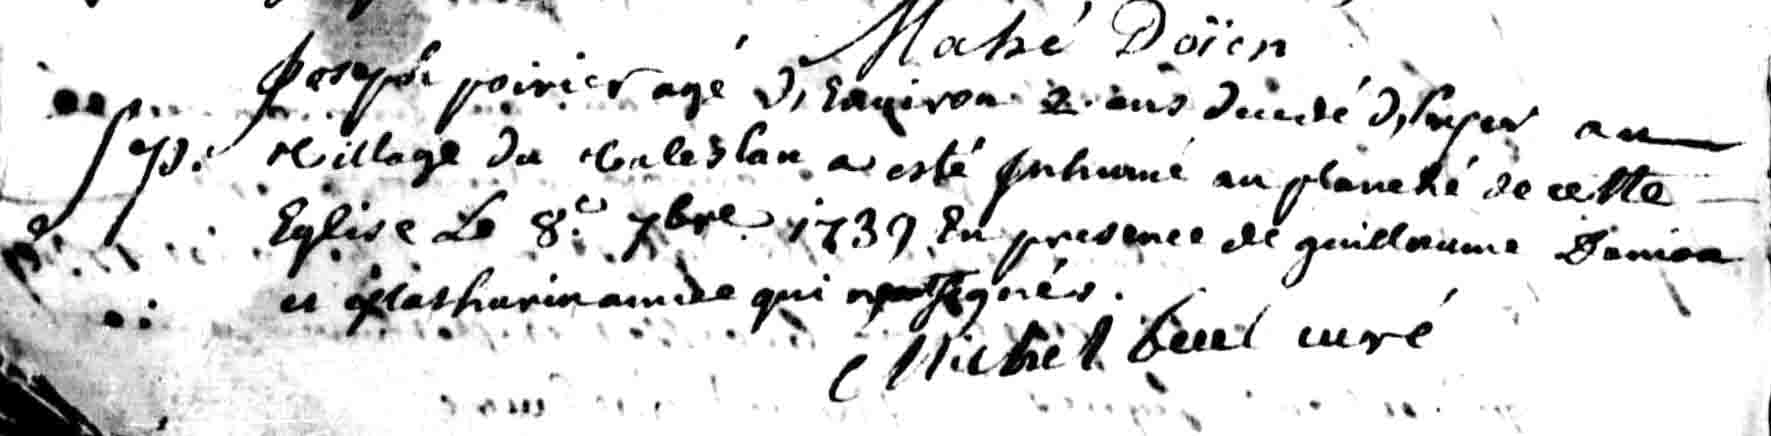 Mahé Doïen
Joseph poirier agé d'Environ 2 ans decedé d'hyer au
Sep. village du Maleslan a esté Inhumé au planché de cette
Eglise Le 8.e 7bre 1739 En presence de guillaume Danion
et Mathurin amice qui signés.
Michel curé